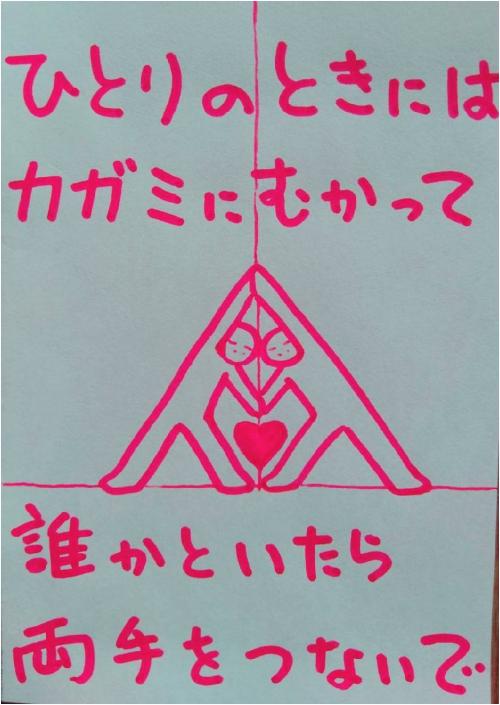 ひとりのときには
カガミにむかって
誰かといたら
両手をつないで